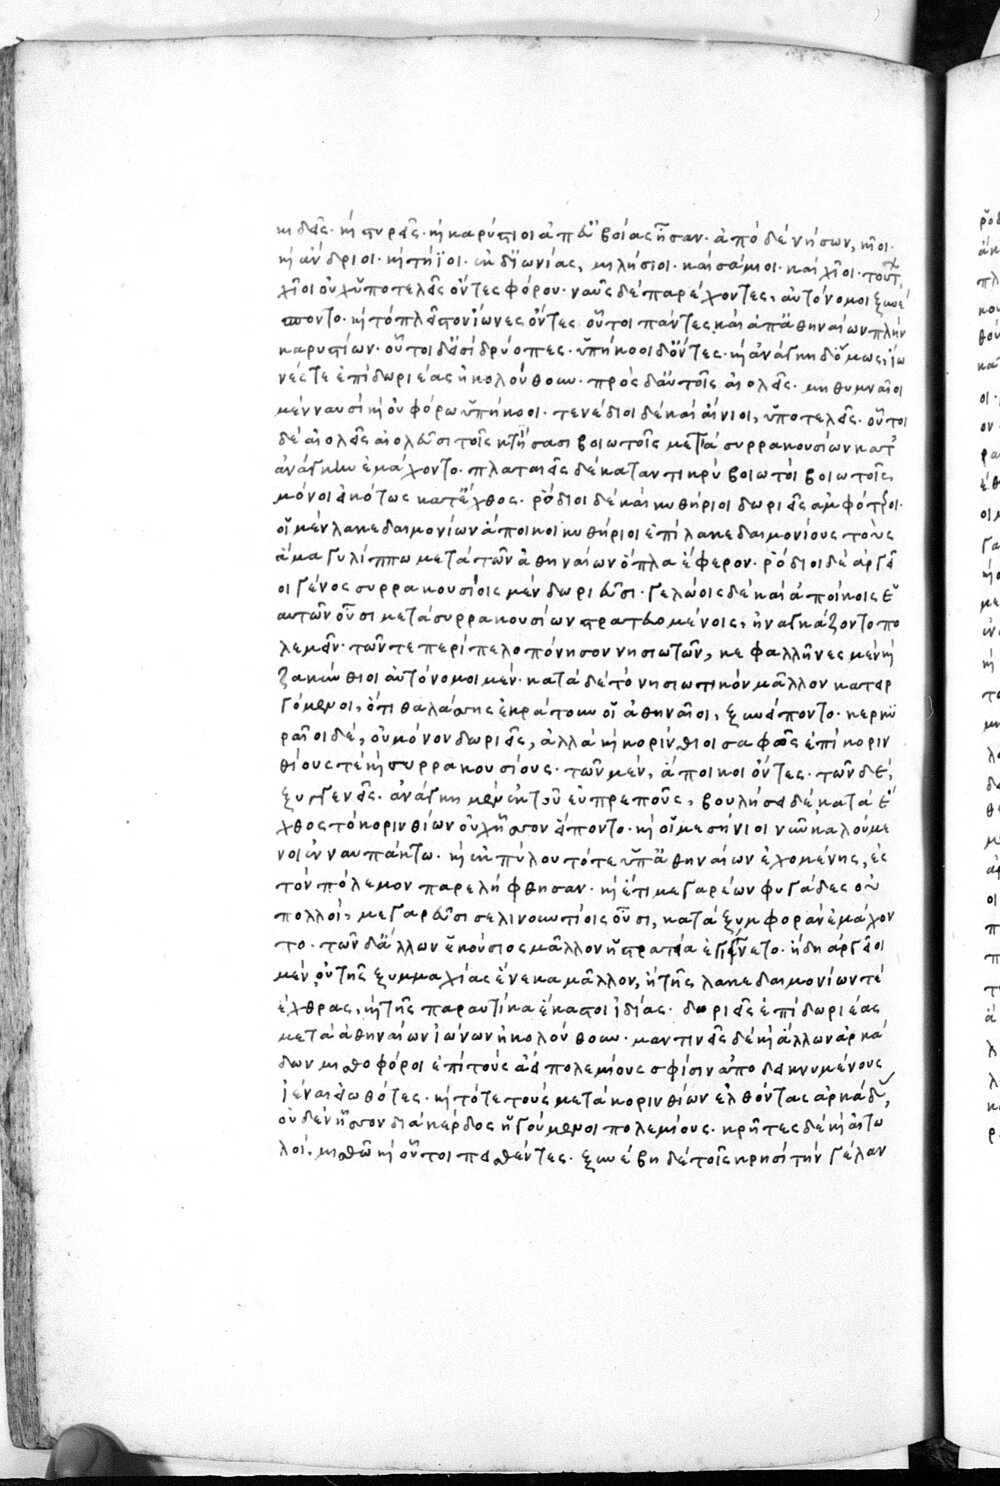 κιδεῖς· καὶ στυρεῖς· καὶ καρύστιοι ἀπ' εὐβοίας ἦσαν· ἀπὸ δὲ νήσων, κῖοι·
καὶ ἄνδριοι· καὶ τήϊοι· ἐκ δ' ἰωνίας, μιλήσιοι· καὶ σάμιοι· καὶ χῖοι· τούτ
χῖοι οὐχ ὑποτελεῖς ὄντες φόρου· ναῦς δὲ παρέχοντες, αὐτόνομοι ξυνέ
σποντο· καὶ τὸ πλεῖστον ἴωνες ὄντες οὗτοι πάντες καὶ ἀπ' ἀθηναίων πλὴν
καρυστίων· οὗτοι δ' εἰσὶ δρύοπες· ὑπήκοοι δ' ὄντες· καὶ ἀνάγκη δ' ὅμως, ἴω
νές τε ἐπὶ δωριέας ἠκολούθουν· πρὸς δ' αὐτοῖς αἰολεῖς· μηθυμναῖοι
μὲν ναυσὶ καὶ οὐ φόρω ὑπήκοοι· τενέδιοι δὲ καὶ αἴνιοι, ὑποτελεῖς· οὗτοι
δὲ αἰολεῖς αἰολεῦσι τοῖς κτήσασι βοιωτοῖς μετὰ συρρακουσίων κατ'
ἀνάγκην ἐμάχοντο· πλαταιεῖς δὲ καταντικρὺ βοιωτοὶ βοιωτοῖς
μόνοι εἰκότως κατ' ἔχθος· ῥόδιοι δὲ καὶ κυθήριοι δωριεῖς ἀμφότεροι·
οἱ μὲν λακεδαιμονίων ἄποικοι κυθήριοι ἐπὶ λακεδαιμονίους τοὺς
ἅμα γυλίππω μετὰ τῶν ἀθηναίων ὅπλα ἔφερον· ῥόδιοι δὲ ἀργεῖ
οι γένος συρρακουσίοις μὲν δωριεῦσι· γελώοις δὲ καὶ ἀποίκοις ἑ
αυτῶν οὖσι μετὰ συρρακουσίων στρατευομένοις, ἠναγκάζοντο πο
λεμεῖν· τῶν τε περὶ πελοπόνησον νησιωτῶν, κεφαλλῆνες μὲν καὶ
ζακύνθιοι αὐτόνομοι μέν· κατὰ δὲ τὸ νησιωτικὸν μᾶλλον κατειρ
γόμενοι, ὅτι θαλάσσης ἐκράτουν οἱ ἀθηναῖοι, ξυνείποντο· κερκυ
ραῖοι δέ, οὐ μόνον δωριεῖς, ἀλλὰ καὶ κορίνθιοι σαφῶς ἐπὶ κοριν
θίους τὲ καὶ συρρακουσίους· τῶν μέν, ἄποικοι ὄντες· τῶν δέ,
ξυγγενεῖς· ἀνάγκη μὲν ἐκ τοῦ εὐπρεποῦς, βουλήσει δὲ κατὰ ἔ
χθος τὸ κορινθίων οὐχ ἧσσον εἵποντο· καὶ οἱ μεσήνιοι νῦν καλούμε
νοι ἐν ναυπάκτω· καὶ ἐκ πύλου τότε ὑπ' ἀθηναίων ἐχομένης, ἐς
τὸν πόλεμον παρελήφθησαν· καὶ ἔτι μεγαρέων φυγάδες οὐ
πολλοί, μεγαρεῦσι σελινουντίοις οὖσι, κατὰ ξυμφορὰν ἐμάχον
το· τῶν δ' ἄλλων ἑκούσιος μᾶλλον ἡ στρατεία ἐγίγνετο· ἤδη ἀργεῖοι
μὲν οὐ τῆς ξυμμαχίας ἕνεκα μᾶλλον, ἢ τῆς λακεδαιμονίων τέ
ἔχθρας, καὶ τῆς παραυτίκα ἕκαστοι ἰδίας· δωριεῖς ἐπὶ δωριέας
μετὰ ἀθηναίων ἰώνων ἠκολούθουν· μαντινεῖς δὲ καὶ ἄλλων ἀρκά
δων μισθοφόροι ἐπὶ τοὺς ἀεὶ πολεμίους σφίσιν ἀποδεικνυμένους
ἰέναι εἰωθότες· καὶ τότε τοὺς μετὰ κορινθίων ἐλθόντας ἀρκάδ,
οὐδὲν ἧσσον διὰ κέρδος ἡγούμενοι πολεμίους· κρῆτες δὲ καὶ αἰτω
λοί, μισθῶ καὶ οὗτοι πεισθέντες· ξυνέβη δὲ τοῖς κρησὶ τὴν γέλαν